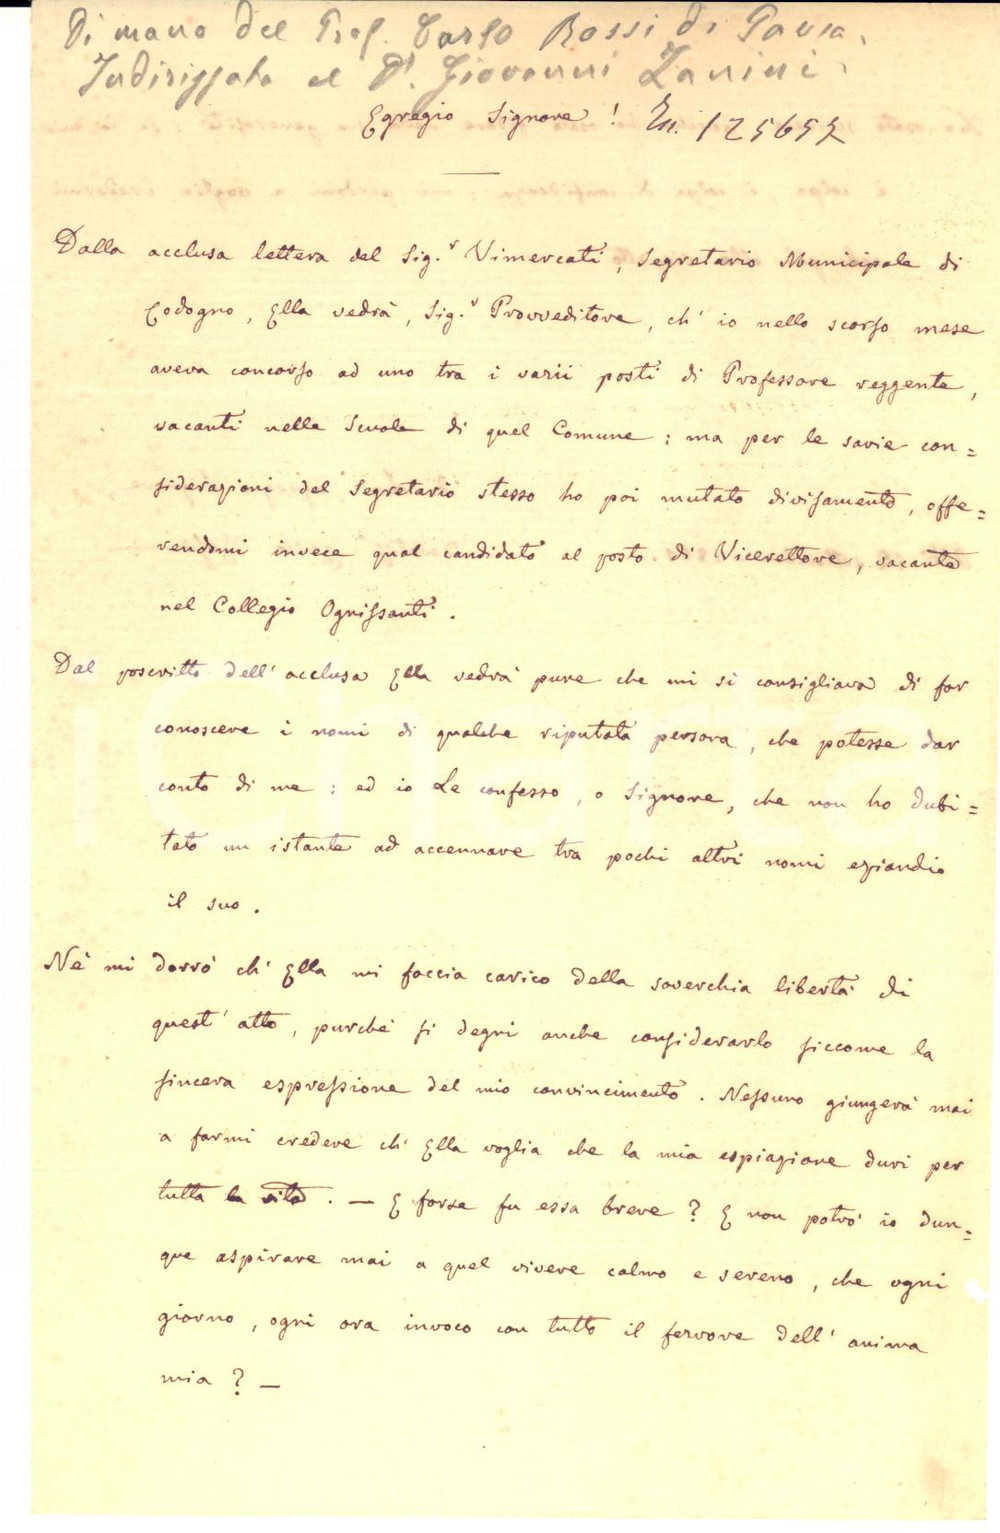 Di mano del Prof. Carlo Rossi di Pavia.
Indirizzata al Dr. Giovanni Zanini.
Egregio Signore! En. 125657
Dalla acclusa lettera del Sig.r Vimercati, Segretario Municipale di
Codogno, Ella vedrà, Sig.r Provveditore, ch' io nello scorso mese
aveva concorso ad uno tra i varii posti di Professore reggente,
vacanti nelle Scuole di quel Comune; ma per le savie con=
siderazioni del Segretario stesso ho poi mutato divisamento, offe=
rendomi invece qual candidato al posto di Vicerettore, vacante
nel Collegio Ognissanti.
Dal poscritto dell' acclusa Ella vedrà pure che mi si consigliava di far
conoscere i nomi di qualche riputata persona, che potesse dar
conto di me; ed io Le confesso, o Signore, che non ho dubi=
tato un istante ad accennare tra pochi altri nomi eziandio
il suo.
Nè mi dorrò ch' Ella mi faccia carico della soverchia libertà di
quest' atto, purchè si degni anche considerarlo siccome la
sincera espressione del mio convincimento. Nessuno giungerà mai
a farmi credere ch' Ella voglia che la mia espiazione duri per
tutta la vita. — E forse fu essa breve? E non potrò io dun=
que aspirare mai a quel vivere calmo e sereno, che ogni
giorno, ogni ora invoco con tutto il fervore dell' anima
mia? —